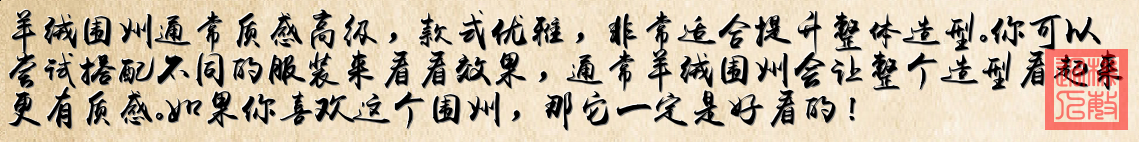 羊绒围州通常质感高级，款式优雅，非常适合提升整体造型.你可以
尝试搭配不同的服装来看看效果，通常羊绒围州会让整个造型看起来
更有质感.如果你喜欢这个围州，那它一定是好看的！